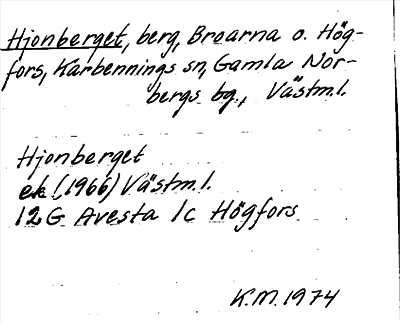 Hjonberget, berg, Broarna o. Hög-
fors, Karbennings sn, Gamla Nor-
bergs bg., Västm.l.
Hjonberget
ek (1966) Västm.l.
12G Avesta 1c Högfors
K.M. 1974